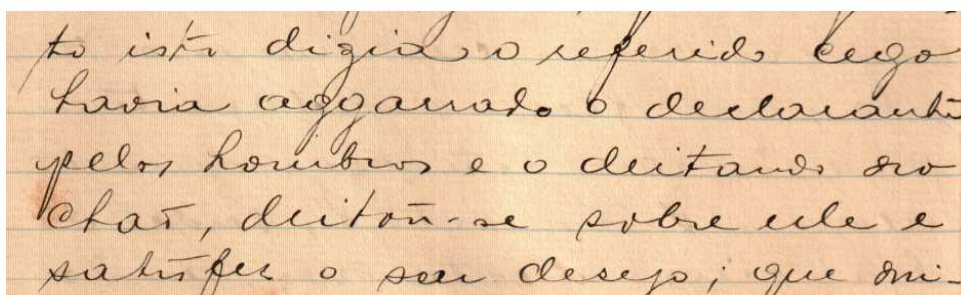 to isto dizia o referido cego
havia aggarrado o declarante
pelos hombros e o deitando no
chaõ, deitoũ-se sobre elle e
satisfez o seu desejo; que mi-